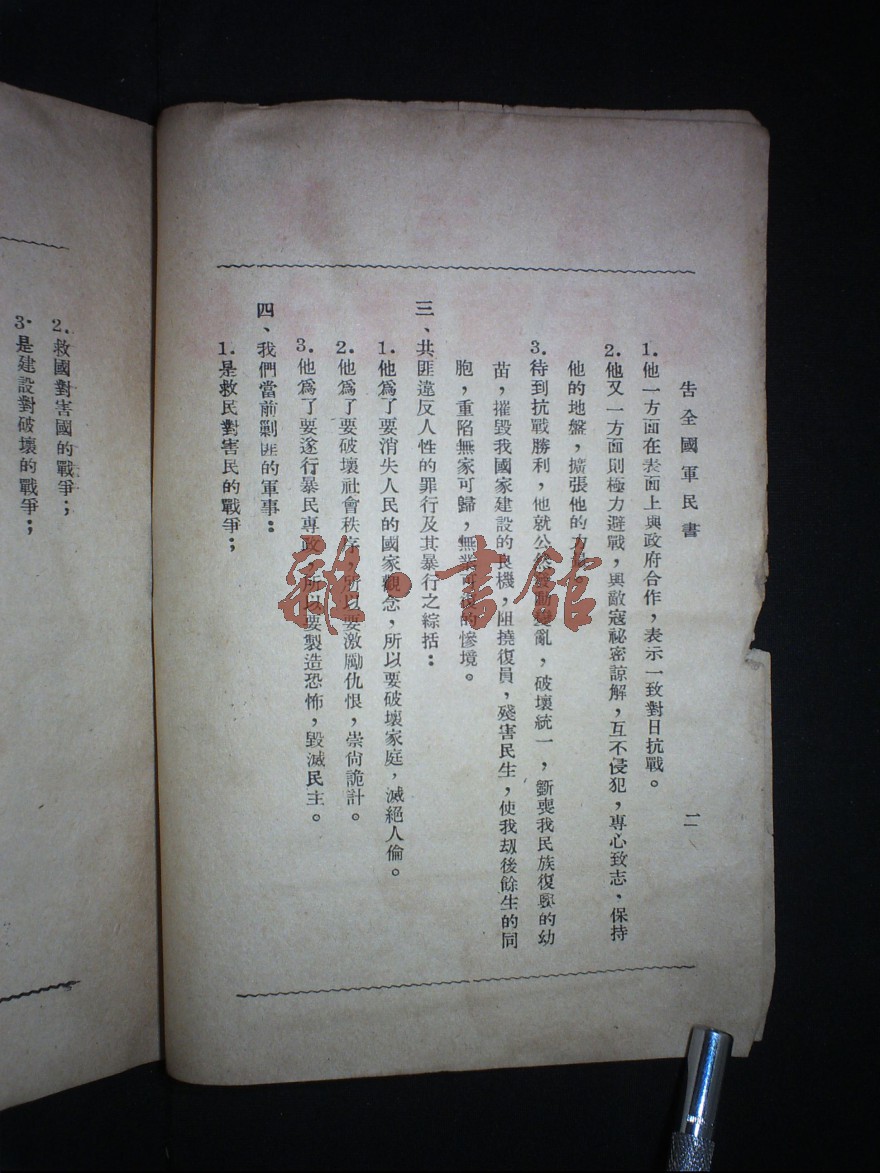 告全國軍民書
二
1.他一方面在表面上與政府合作，表示一致對日抗戰。
2.他又一方面則極力避戰，與敵寇祕密諒解，互不侵犯，專心致志、保持
他的地盤，擴張他的
3.待到抗戰勝利，他就公然發動變亂，破壞統一，斷喪我民族復興的幼
苗，摧毀我國家建設的良機，阻撓復員，殘害民生，使我劫後餘生的同
胞，重陷無家可歸，無業可復的慘境。
三、共匪違反人性的罪行及其暴行之綜括：
1.他為了要消失人民的國家觀念，所以要破壞家庭，滅絕人倫。
2.他為了要破壞社會秩序，所以要激勵仇恨，崇尚詭計。
3.他為了要遂行暴民專政，所以要製造恐怖，毀滅民主。
四、我們當前剿匪的軍事：
1.是救民對害民的戰爭；
2.救國對害國的戰爭；
3.是建設對破壞的戰爭；
雜·書館